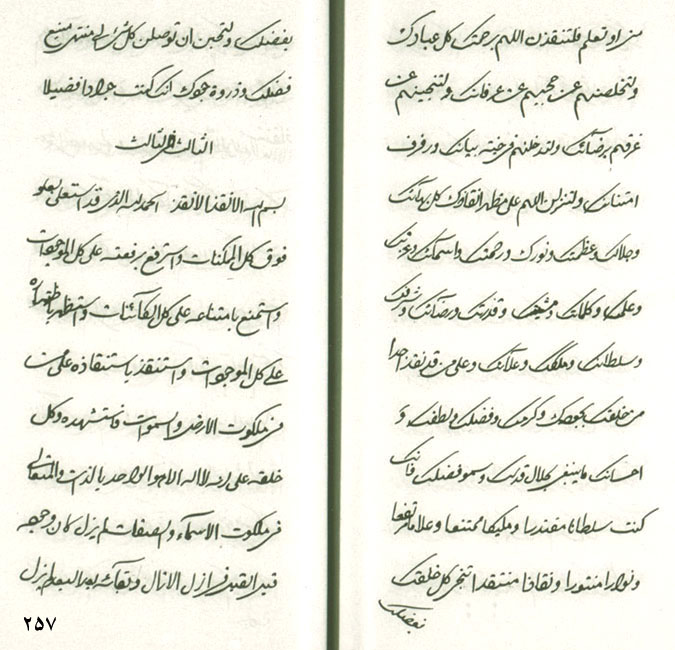 من او تعلم فلتنقذن اللهم برحمتک کل عبادک
ولتخلصنهم عن حجبهم عن عرفانک ولتنجينهم عن
غرقهم برضائک ولتدخلنهم فى جنة بيانک ورفرف
امتناعک ولتنزلن اللهم على مظهر انقاذک کل بهائک
وجلالک وعظمتک ونورک ورحمتک واسمائک وعزتک
وعلمک وکلماتک ومشيتک وقدرتک ورضائک وشرفک
وسلطانک وملکک وعلائک وعلى من قد نقذ احدا
من خلقک بجودک وکرمک وفضلک ولطفک و
احسانک ما ينبغى لجلال قدسک وسمو فضلک فانک
کنت سلطانا مقتدرا ومليکا ممتنعا وعلاما مرتفعا
ونوارا منتورا ونقاذا منتقذا لتنجى کل خلقک
بفضلک
بفضلک ولتحبن ان توصلن کل شئ الى منتهى منيع
فضلک وذروة جودک انک کنت جوادا فضيلا
الثالث فى الثالث
بسم الله الانقذ الانقذ الحمد لله الذى قد استعلى بعلوه
فوق کل الممکنات واسترفع برفعته على کل الموجودات
واستمنع بامتناعه على کل الکائنات واستظهر باظهاره
على کل الموجودات واستنقذ باستنقاذه على من
فى ملکوت الارض والسموات فاستشهده وکل
خلقه على انه لا اله الا هو الواحد بالذات والمتعالى
فى ملکوت الاسماء والصفات لم يزل کان وجوده
قبل القبل فى ازل الازال وبقائه بعد البعد لم يزل
٢٥٧